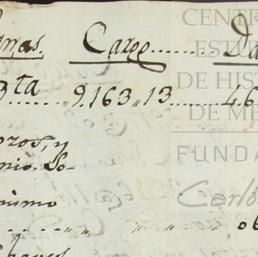 Cargo........ Da
ta........ 9.163,,13..... 4.6
ozos, y
nio. So-
nimo
........ ,, ,, ,, 06
CENTR
EST
DE HIST
DE ME
FUNDA
Carlo